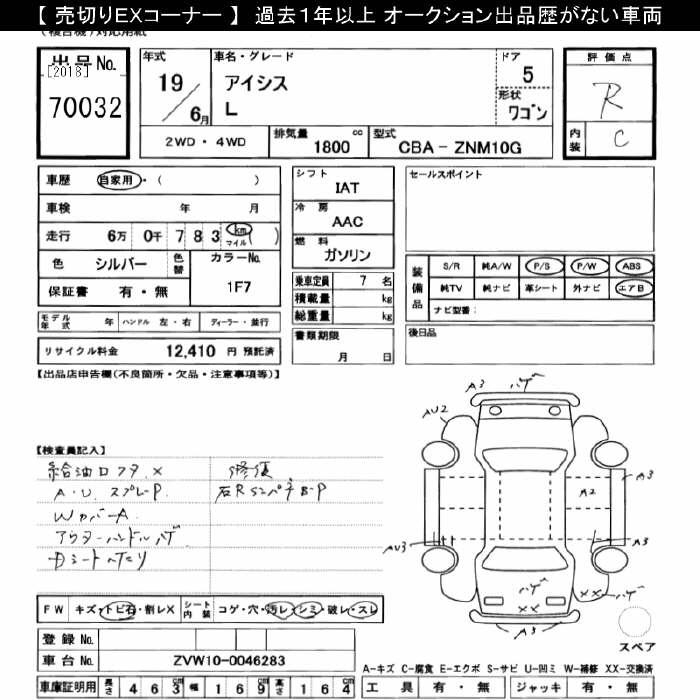 【 売切りEXコーナー 】 過去１年以上 オークション出品歴がない車両
出品No.
[2018]
70032
年式
19
6月
車名・グレード
アイシス
L
ドア
5
形状
ワゴン
2WD ・ 4WD
排気量
cc
1800
型式
CBA - ZNM10G
評価点
R
内装
C
車歴
自家用・( )
車検 年 月
走行 6万 0千 7 8 3 km マイル ( )
色 シルバー
色替
カラーNo.
1F7
保証書 有 ・ 無
モデル年式 年
ハンドル 左・右
ディーラー・並行
リサイクル料金 12,410 円 預託済
シフト
IAT
冷房
AAC
燃料
ガソリン
乗車定員 7 名
積載量 kg
総重量 kg
書類期限
月 日
セールスポイント
装備品
S/R 純A/W P/S P/W ABS
純TV 純ナビ 革シート 外ナビ エアB
ナビ型番:
後日品
【出品店申告欄(不良箇所・欠品・注意事項等)】
【検査員記入】
給油口フタ ×
A・U スプレーP
Wカバー A
アウターハンドルハゲ
修復
A3
ハゲ
AU2
A3
A2
AU3
A3
ハゲ
××
××
ハゲ
A3
スペア
FW キズ・トビ石・割レX
シート内装
コゲ・穴・汚レ・シミ・破レ・スレ
登録 No.
車台 No. ZVW10-0046283
車庫証明用 長さ 4 6 3cm 幅 1 6 9cm 高さ 1 6 4cm
A-キズ C-腐食 E-エクボ S-サビ U-凹ミ W-補修 XX-交換済
工具 有 ・ 無 ジャッキ 有 ・ 無